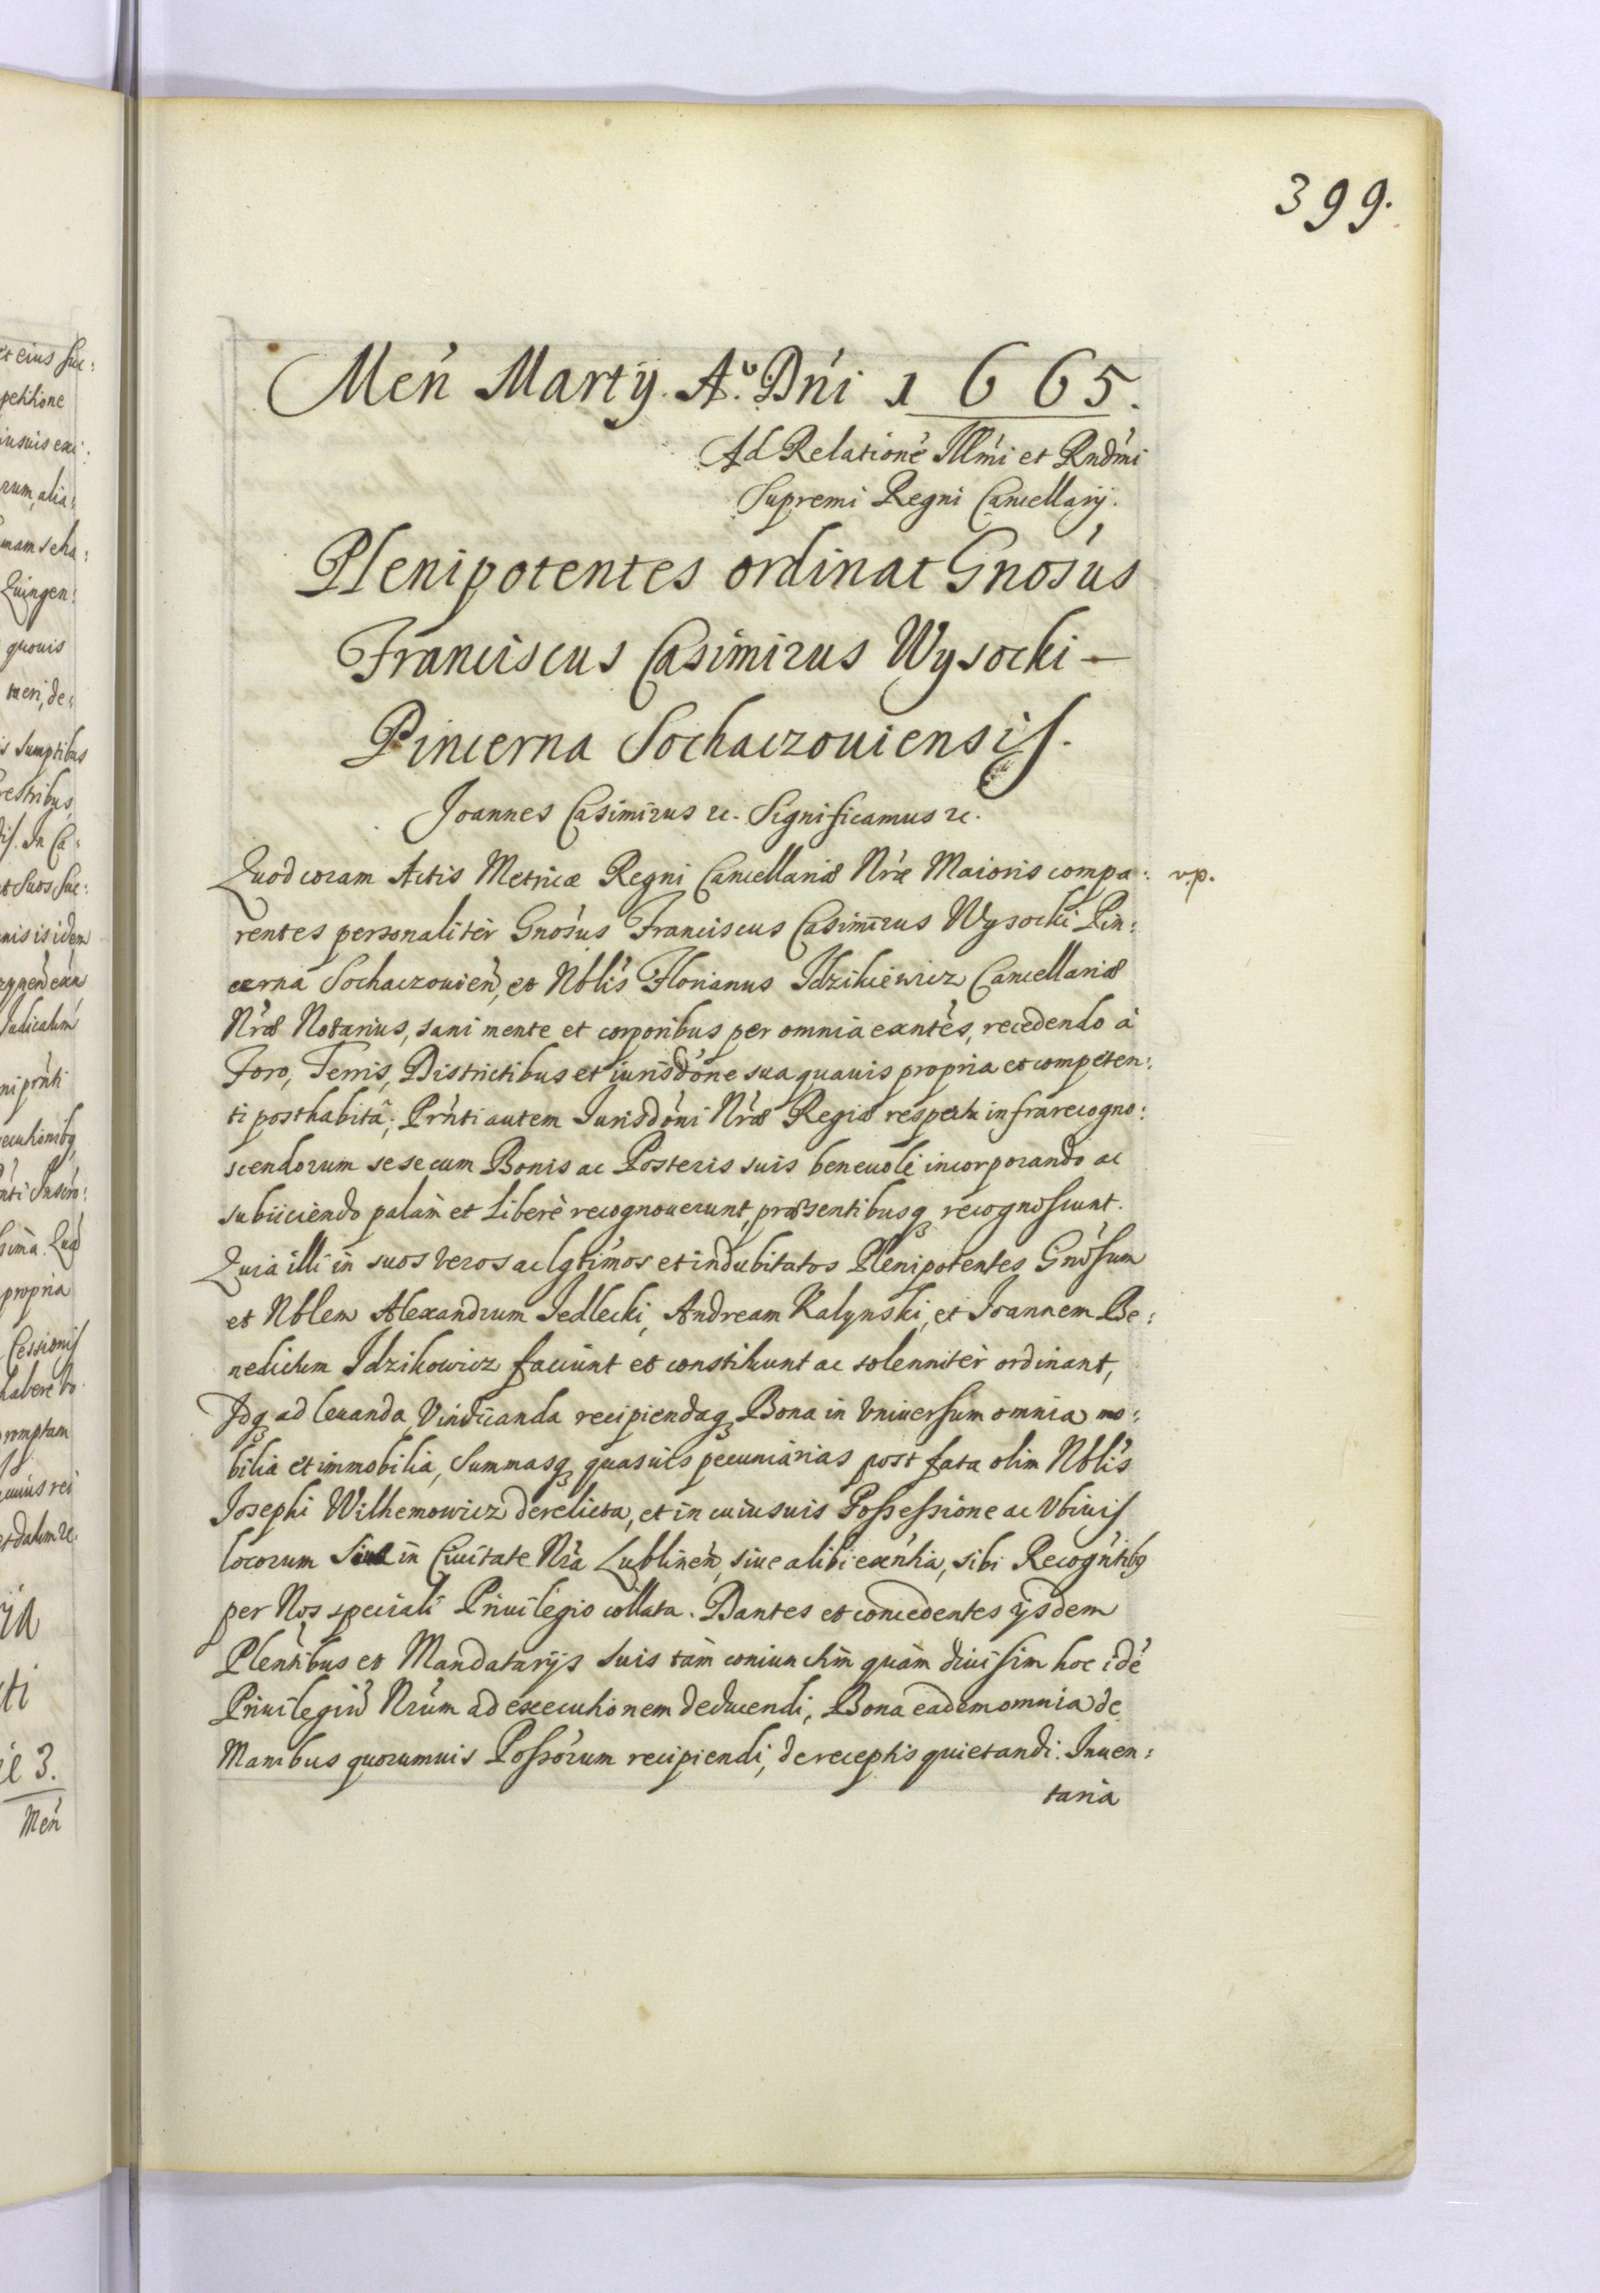 399.
Men̄ Martij. Aº. Dn̄i 1665.
Ad Relatione Illm̄i et Rndm̄i
Supremi Regni Cancellarij.
Plenipotentes ordinat Gnosus
Franciscus Casimirus Wysocki —
Pincerna Sochaczouiensis.
Joannes Casimirus etc. Significamus etc.
Quod coram Actis Metricæ Regni Cancellariæ Nræ Maioris compa: v.p.
rentes personaliter Gnosus Franciscus Casimirus Wysocki Pin:
cerna Sochaczouien, et Nblis Florianus Idzikiewicz Cancellariæ
Nræ Notarius, sani mente et corporibus per omnia exntes, recedendo à
Foro, Terris, Districtibus et iurisdone sua quauis propria et competen:
ti posthabitâ; Prnti autem Jurisdoni Nræ Regiæ respectu infrarecogno:
scendorum sese cum Bonis ac Posteris suis beneuole incorporando ac
subiiciendo palàm et liberè recognouerunt, præsentibusq recognoscunt.
Quia illi in suos veros ac lgtimos et indubitatos Plenipotentes Gnosum
et Nblem Alexandrum Jedlecki, Andream Kalynski, et Joannem Be:
nedictum Idzikowicz faciunt et constituunt ac solenniter ordinant,
Idq ad leuanda, Vindicanda recipiendaq Bona in vniuersum omnia mo:
bilia et immobilia, Summasq quasuis pecuniarias post fata olim Nblis
Josephi Wilhemowicz derelicta, et in cuiusuis Possessione ac Vbiuis
locorum Siue in Ciuitate Nra Lublinen, siue alibi exntia, sibi Recogntibq
per Nos speciali Priuilegio collata. Dantes et concedentes ijsdem
Plentibus et Mandatarijs suis tàm coniunctim quàm diuisim hoc idé
Priuilegiū Nrum ad executionem deducendi, Bona eadem omnia de
Manibus quorumuis Possorum recipiendi, de receptis quietandi. Inuen:
taria